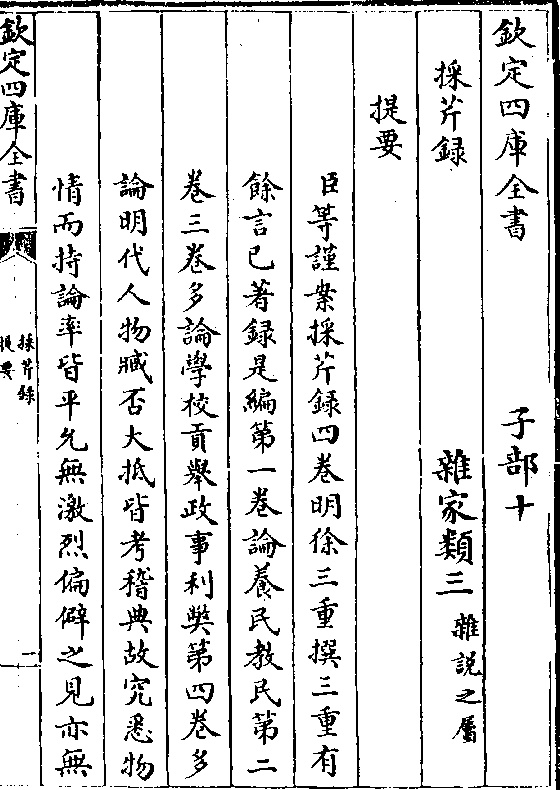 欽定四庫全書　子部十
採芹録　雜家類三雜説之屬
提要
臣等謹案採芹録四卷明徐三重撰三重有
餘言已著録是編第一卷論養民教民第二
卷三卷多論學校貢舉政事利獘第四卷多
論明代人物臧否大抵皆考稽典故究悉物
情而持論率皆平允無激烈偏僻之見亦無
欽定四庫全書
採芹録
提要
一